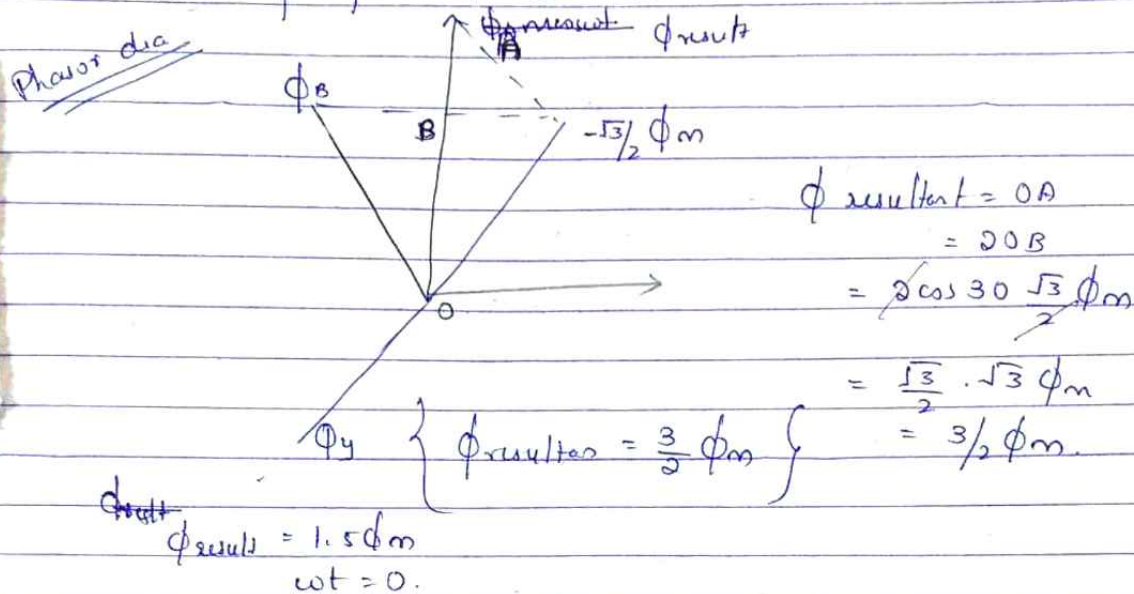 Phasor dia
ϕ result
A
ϕB
B
-√3/2 ϕm
ϕ resultant = OA
= 2OB
= 2 cos 30 √3/2 ϕm
O
= √3/2 . √3 ϕm
= 3/2 ϕm.
ϕy
{ ϕresultan = 3/2 ϕm }
ϕresult = 1.5ϕm
ωt = 0.